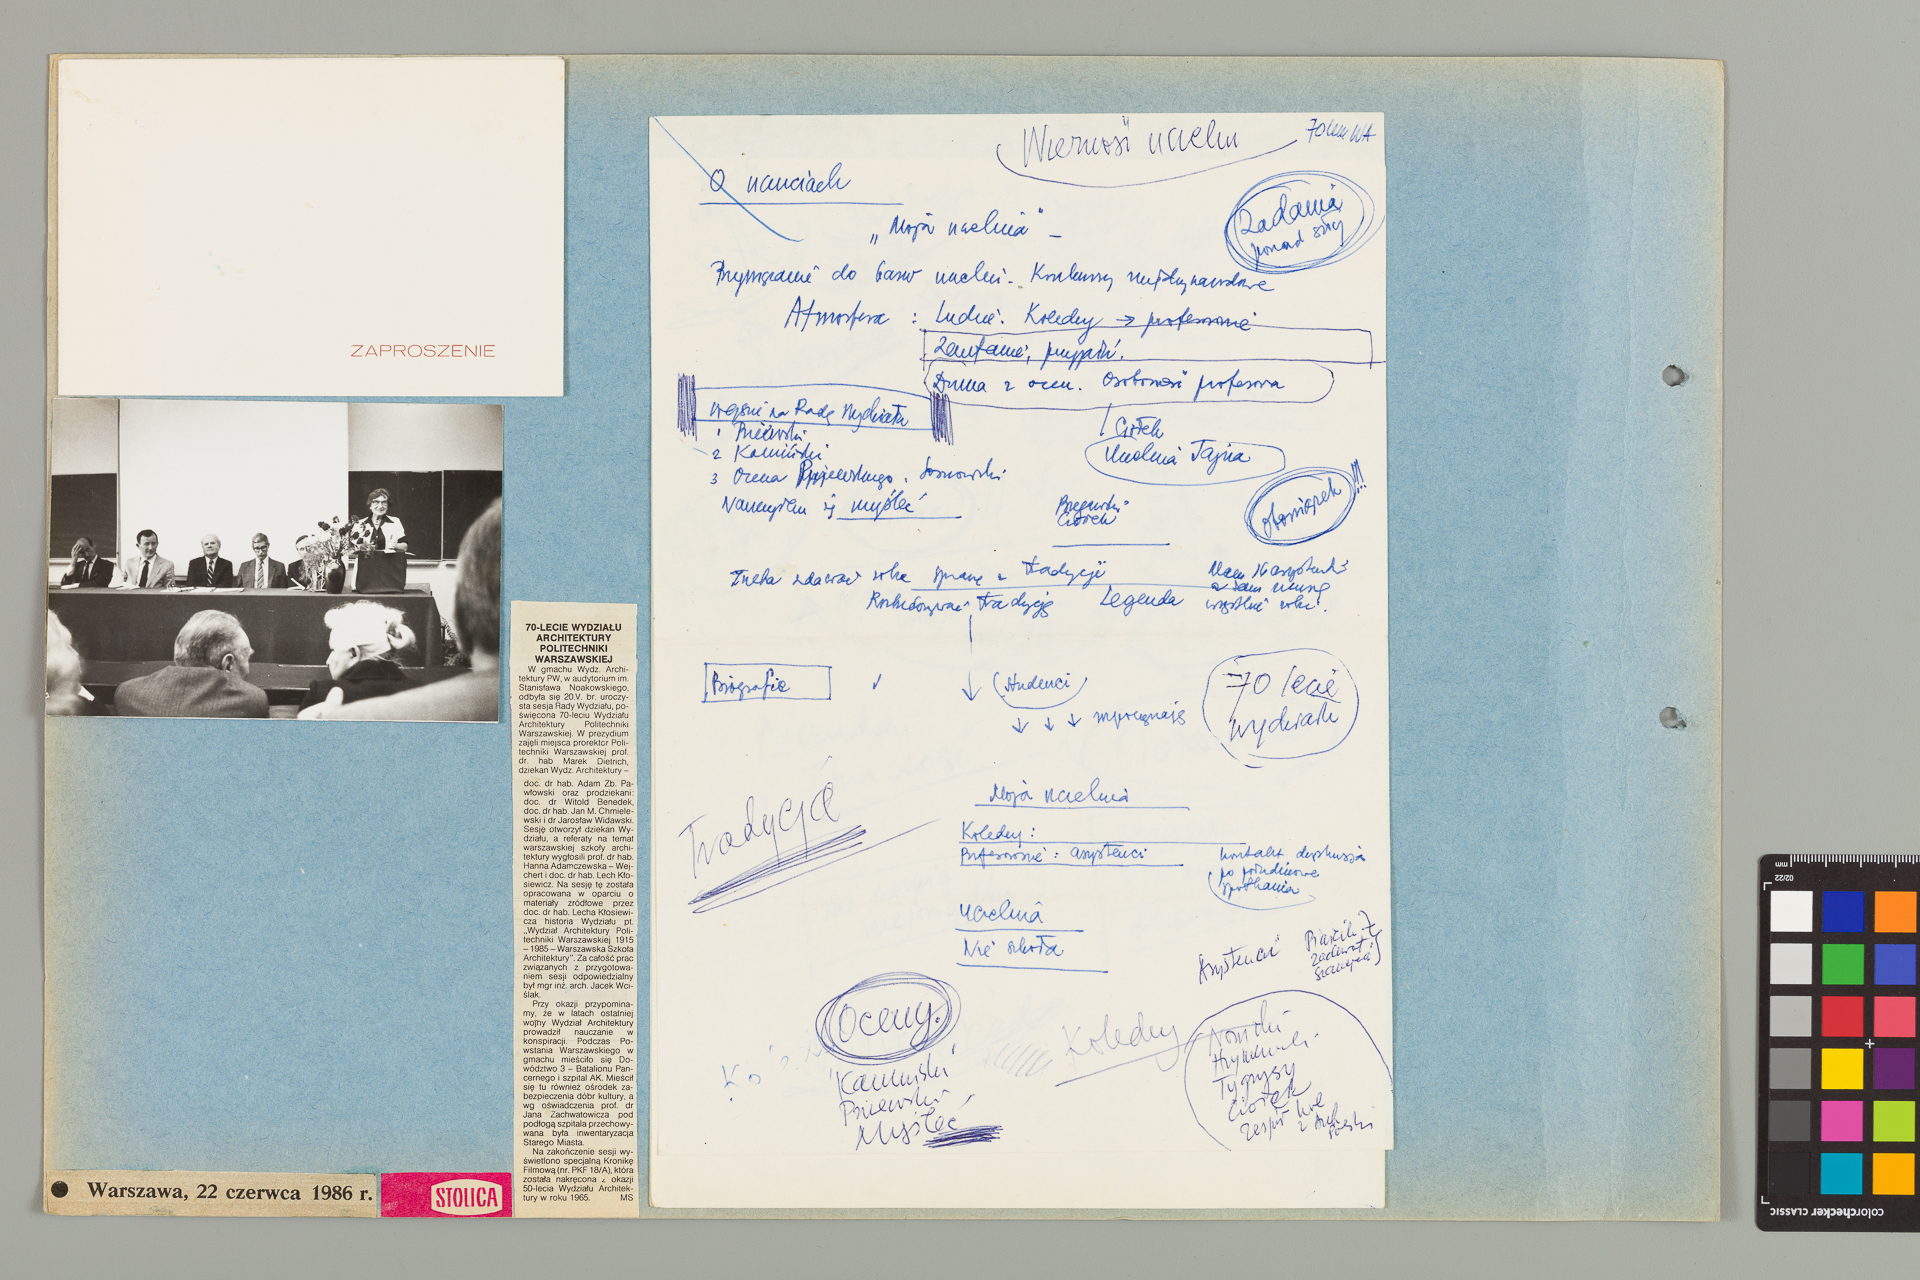 ZAPROSZENIE
70-LECIE WYDZIAŁU
ARCHITEKTURY
POLITECHNIKI
WARSZAWSKIEJ
W gmachu Wydz. Archi-
tektury PW, w audytorium im.
Stanisława Noakowskiego,
odbyła się 20.V. br. uroczy-
sta sesja Rady Wydziału, po-
święcona 70-leciu Wydziału
Architektury Politechniki
Warszawskiej. W prezydium
zajęli miejsca prorektor Poli-
techniki Warszawskiej prof.
dr. hab Marek Dietrich,
dziekan Wydz. Architektury –
doc. dr hab. Adam Zb. Pa-
włowski oraz prodziekani:
doc. dr Witold Benedek,
doc. dr hab. Jan M. Chmiele-
wski i dr Jarosław Widawski.
Sesję otworzył dziekan Wy-
działu, a referaty na temat
warszawskiej szkoły archi-
tektury wygłosili prof. dr hab.
Hanna Adamczewska – Wej-
chert i doc. dr hab. Lech Kło-
siewicz. Na sesję tę została
opracowana w oparciu o
materiały źródłowe przez
doc. dr hab. Lecha Kłosiewi-
cza historia Wydziału pt.
„Wydział Architektury Poli-
techniki Warszawskiej 1915
– 1985 – Warszawska Szkoła
Architektury”. Za całość prac
związanych z przygotowa-
niem sesji odpowiedzialny
był mgr inż. arch. Jacek Wci-
ślak.
Przy okazji przypomina-
my, że w latach ostatniej
wojny Wydział Architektury
prowadził nauczanie w
konspiracji. Podczas Po-
wstania Warszawskiego w
gmachu mieściło się Do-
wództwo 3 – Batalionu Pan-
cernego i szpital AK. Mieścił
się tu również ośrodek za-
bezpieczenia dóbr kultury, a
wg oświadczenia prof. dr
Jana Zachwatowicza pod
podłogą szpitala przechowy-
wana była inwentaryzacja
Starego Miasta.
Na zakończenie sesji wy-
świetlono specjalną Kronikę
Filmową (nr. PKF 18/A), która
została nakręcona z okazji
50-lecia Wydziału Architek-
tury w roku 1965. MS
Warszawa, 22 czerwca 1986 r.
STOLICA
Wierność uczelni
70 lecie WA
O uczuciach
„Moja uczelnia" –
Zadania
ponad siły
Przywiązanie do barw uczelni. Konkursy międzynarodowe
Atmosfera : Ludzie. Koledzy → profesorowie
Zaufanie, przyjaźń.
Duma z ocen. Osobowość profesora
wejście na Radę Wydziału
1 Pniewski
2 Kamiński
3 Ocena . Sosnowski
Nauczyłem się myśleć
Ciołek
Uczelnia Tajna
Biegański
Ciołek
obowiązek !!!
Trzeba zdawać sobie sprawę z tradycji
Rozbudowywać tradycję Legenda
Mam 16 asystentów
a sam muszę
wszystko robić.
Biografie
studenci
70 lecie
wydziału
Tradycja
Moja uczelnia
Koledzy :
Profesorowie : asystenci
kontakt dyskusja
po południowe
spotkania
uczelnia
Nie szkoła
Asystenci
Piaścik
Oceny.
Kamiński
Pniewski
Myśleć
Koledzy
Nowicki
Hryniewiecki
Tygrysy
Ciołek
zespół